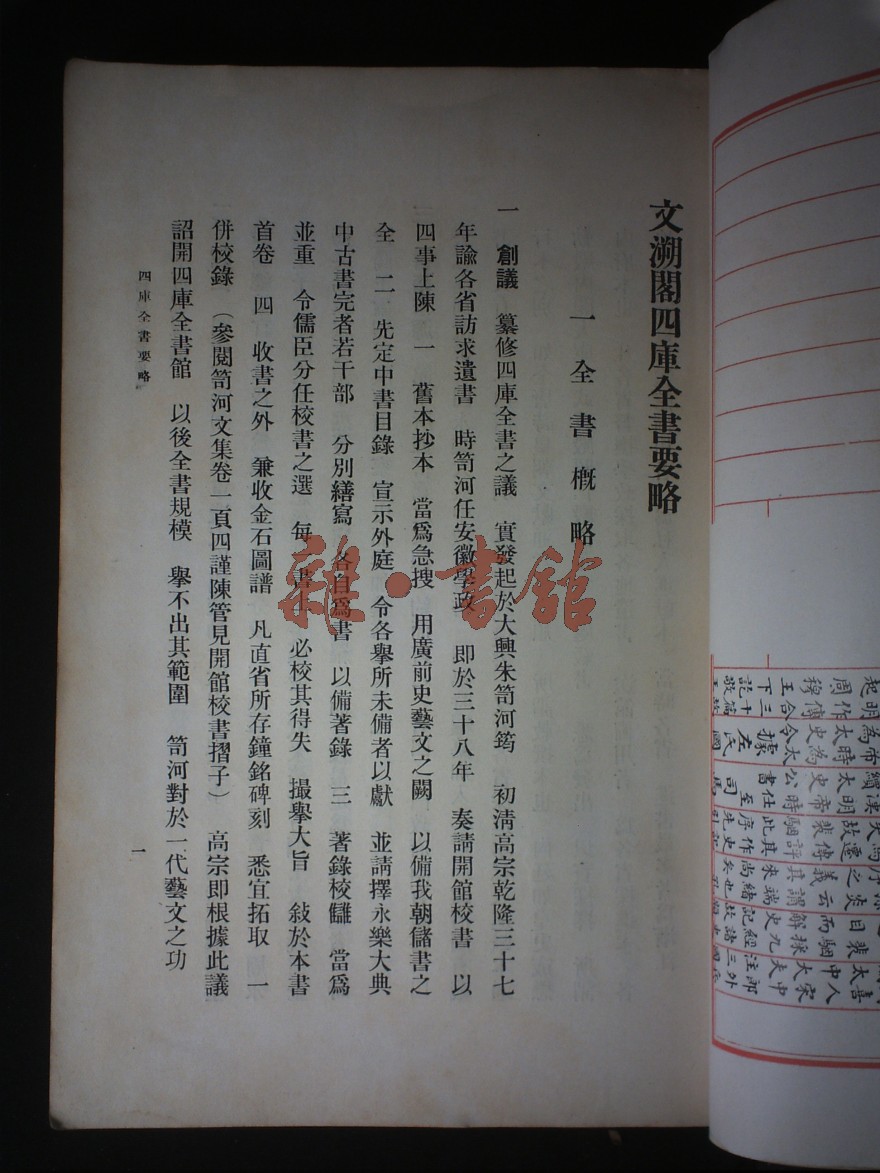 文溯閣四庫全書要略
一 全書概略
一 創議 纂修四庫全書之議 實發起於大興朱笥河筠 初清高宗乾隆三十七
年諭各省訪求遺書 時笥河任安徽學政 即於三十八年 奏請開館校書 以
四事上陳 一 舊本抄本 當爲急搜 用廣前史藝文之闕 以備我朝儲書之
全 二 先定中書目錄 宣示外庭 令各舉所未備者以獻 並請擇永樂大典
中古書完者若干部 分別繕寫 各自爲書 以備著錄 三 著錄校讎 當爲
並重 令儒臣分任校書之選 每一書上 必校其得失 撮舉大旨 敍於本書
首卷 四 收書之外 兼收金石圖譜 凡直省所存鐘銘碑刻 悉宜拓取 一
併校錄 (參閱笥河文集卷一頁四謹陳管見開館校書摺子) 高宗即根據此議
詔開四庫全書館 以後全書規模 舉不出其範圍 笥河對於一代藝文之功
四庫全書要略
一
雜·書館